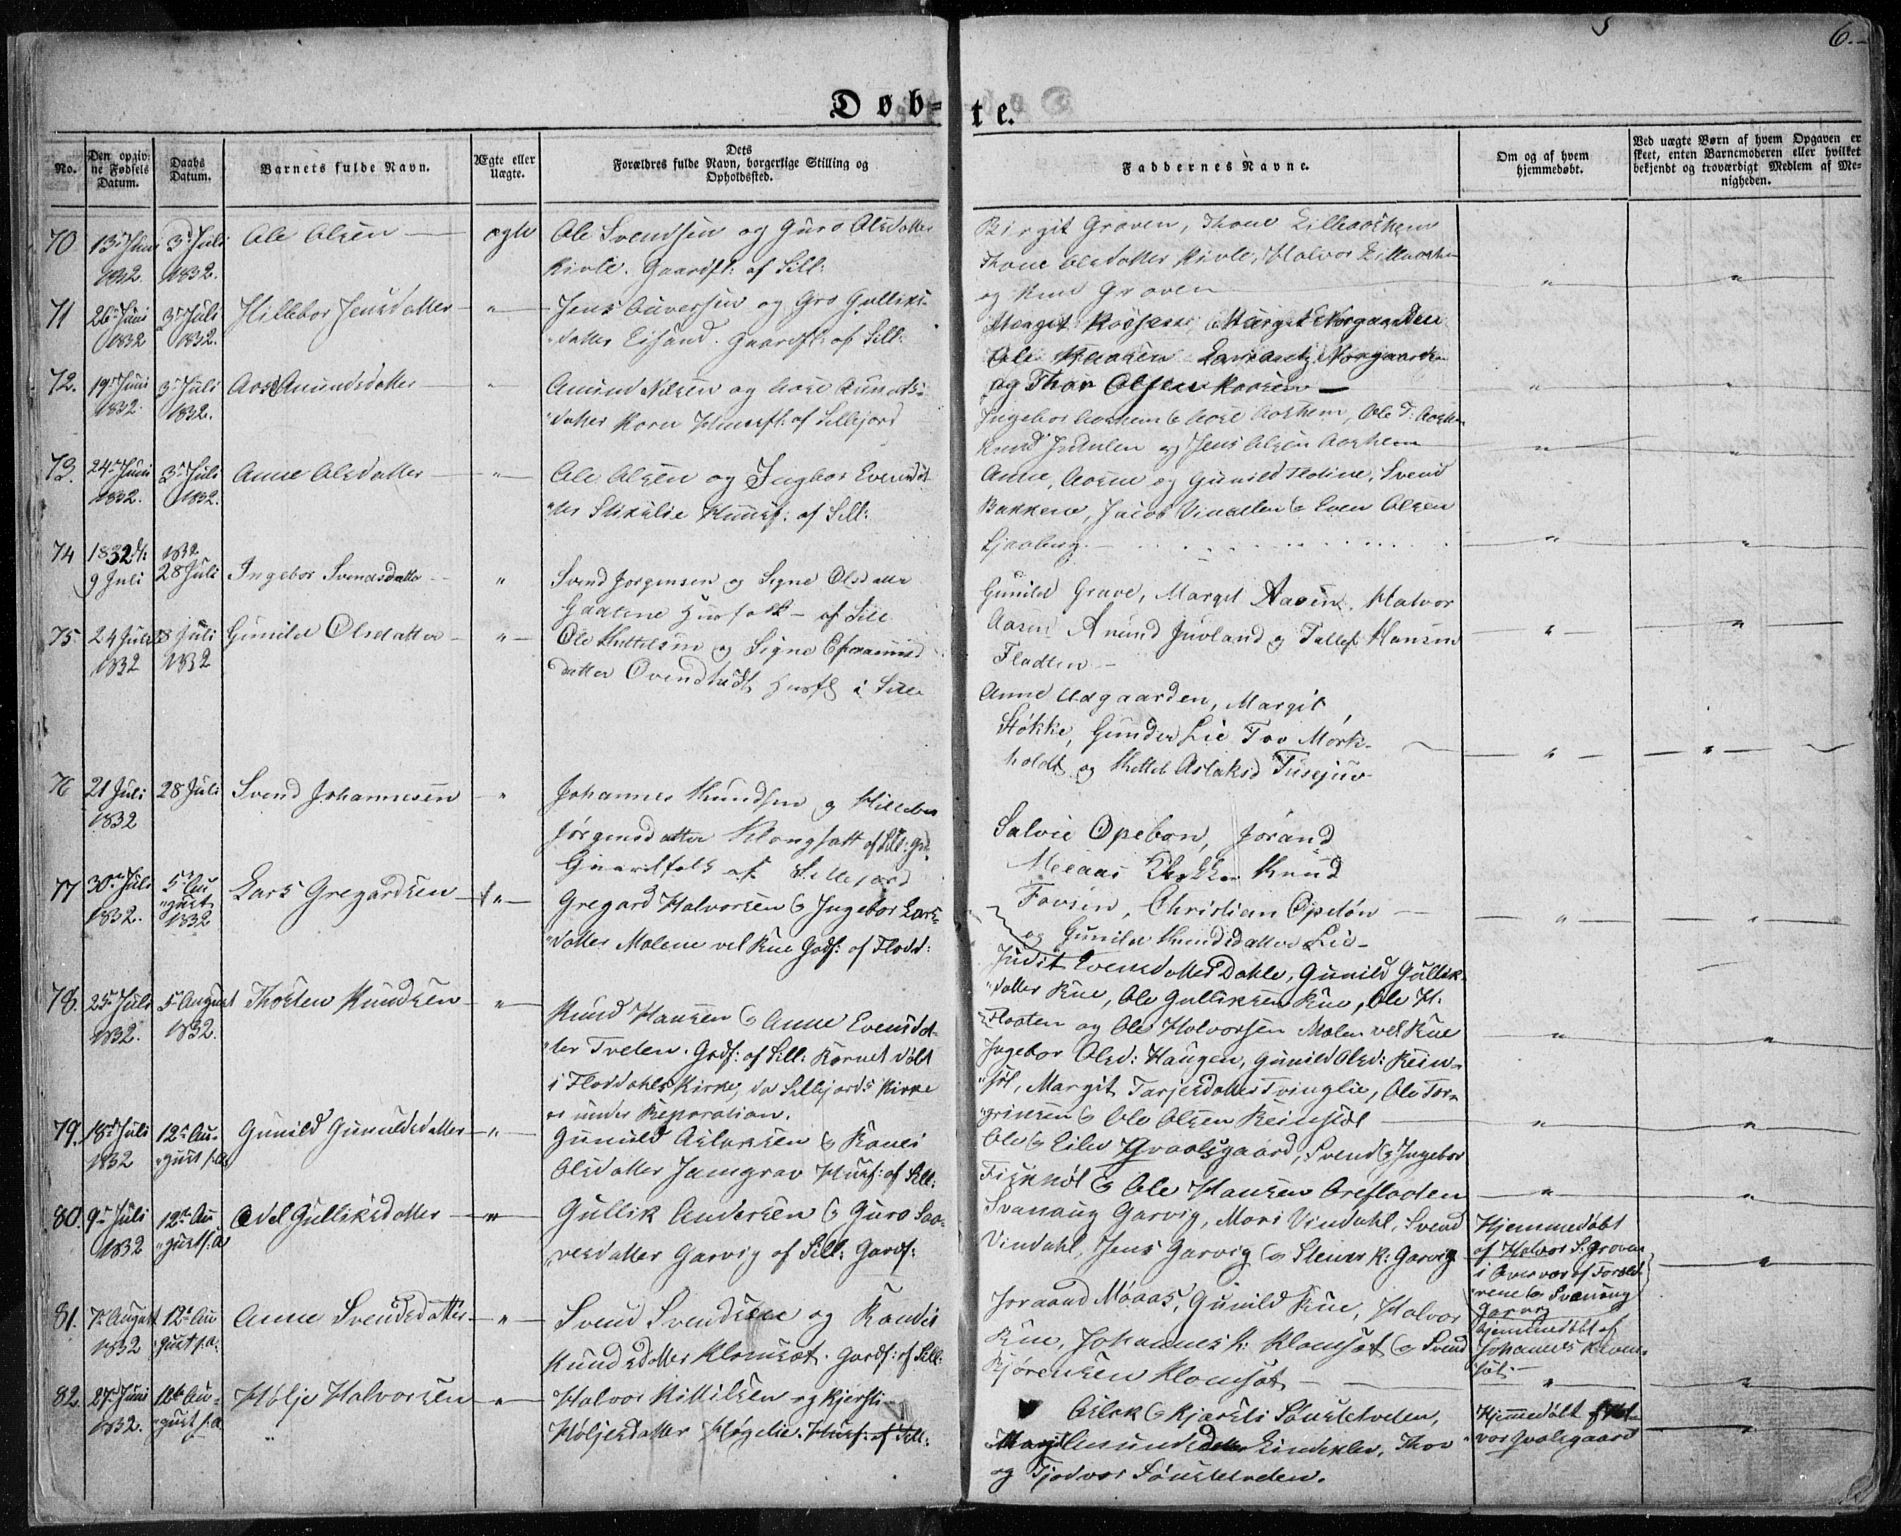 6.-
Døb-te.
No.
Den opgivne Fødsels Datum.
Daabs Datum.
Barnets fulde Navn.
Ægte eller Uægte.
Dets Forældres fulde Navn, borgerlige Stilling og Opholdssted.
Faddernes Navne.
Om og af hvem hjemmedøbt.
Ved uægte Børn af hvem Opgaven er skeet, enten Barnemoderen eller hvilket bekjendt og troværdigt Medlem af Menigheden.
70 13de Juni 1832. 3de Juli 1832. Ole Olsen ægte
Ole Svendsen og Guro Olsdatter
Kivle. Gaardf: af Sill:
Birgit Groven, Thone Lilleaashem
Thone Olsdatter Kivle, Halvor Lilleaashem
og Knud Groven
71 26de Juni 1832 3de Juli 1832. Hillebor Jensdatter "
Jens Guversen og Gro Gulliks-
datter Eisand. Gaardf: af Sill:
Margit Norgaarden
Ole
og Thor Olsen
72. 19de Juni 1832. 3de Juli 1832. Aase Amundsdatter "
Amund Nilsen og Aase Amunds-
datter Huusf: af Sillejord
Ingebor Aashem & Aase Aashem, Ole T: Aashem
Knud og Jens Olsen Aashem
73. 24de Juni 1832. 3de Juli 1832. Anne Olsdatter "
Ole Olsen og Ingbor Evensdat-
ter Huusf: af Sill:
Anne, Aasne og Gunild Flatine, Svend
Bakkene, Jacob Vindlen & Even Olsen
Ljaaberg.
74 1832 9 Juli 1832 28 Juli Ingebor Svendsdatter "
Svend Jorgensen og Signe Olsdatter
Husfolk - af Sill
Gunild Grave, Margit Aasen, Halvor
Aasen Anund Juvland og Tallef Hansen
Fladten
75 24 Juli 1832 28 Juli 1832 Gunild Olsdatter "
Ole Kettelsen og Signe
datter Husf i Sille
Anne Udgaarden, Margit
Støkke, Gunder Lie Tov Mork-
holdt og Kettel Aslaksd
76 21 Juli 1832 28 Juli Svend Johannesen "
Johannes Knudsen og Hillebor
Jørgensdatter af Sill:
Gaardfolk af Sillejord
Salvie Opebøn, Jorand
Meaas Knud
Fovsen, Christian Opebøn
og Gunild Knudsdatter Lie-
77 30de Juli 1832. 5te August 1832 Lars Gregardsen "
Gregard Halvorsen & Ingebor Lars-
datter Molene vel Rue Gaardf: af Flodd:
Judit Evensdatter Dahle, Gunild Gullik-
datter Rue, Ole Gulliksen Rue, Ole H:
Flaaten og Ole Halvorsen Molen vel Rue
78. 25de Juli 1832. 5te August 1832. Thorsten Knudsen "
Knud Hansen & Anne Evensdat-
ter Tveten. Gardf: af Sill: Barnet døbt
i Flaadahls Kirke, da Sillejords Kirke
er under Reparation.
Ingebor Olsd: Haugen, Gunild Olsd: Rein-
søl, Margit Tarjersdatter Tvinglie, Ole Tor-
grimsen & Ole Olsen Reinsøl
79. 18de Juli 1832 12te August s.a. Gunild Gunuldsdatter "
Gunuld Aslaksen & Ranei
Olsdatter Jamgrav Husf: af Sill:
Ole & Eilev Qvaalsgaard, Svend & Ingebor
& Ole Hansen Oreflaaten
80. 9de Juli 1832 12te August s.a. Odel Gulliksdatter "
Gullik Andersen & Guro Saa-
vesdatter Garvig af Sill: Gardf:
Svanaug Garvig, Mari Vindahl, Svend
Vindahl, Jens Garvig & Stener K: Garvig
Hjemmedøbt
af Halvor S. Groven
i Overvær af Foræld-
rene & Svanaug
Garvig
81. 7de August 1832 12te August s.a. Anne Svendsdatter "
Svend Svendsen og Randi
Knudsdatter Klomset. Gardf: af Sill:
Joraand Maaas, Gunild Rue, Halvor
Rue, Johannes K: Klomsæt & Svend
Bjørensen Klomsøt
hjemmedøbt af
Johannes Klom-
søt.
82. 27de Juni 1832. 12te August s.a. Hølje Halvorsen "
Halvor Kittilsen og Kjersti
Høljesdatter Høgelie. Husf: af Sill:
Aslak & Kjersti Sønstetveten,
Amundsdatter Lindeklev, Thor
og Tjodvor Sønstetveten.
Hjemmedøbt af Hal-
vor Qvalsgaard